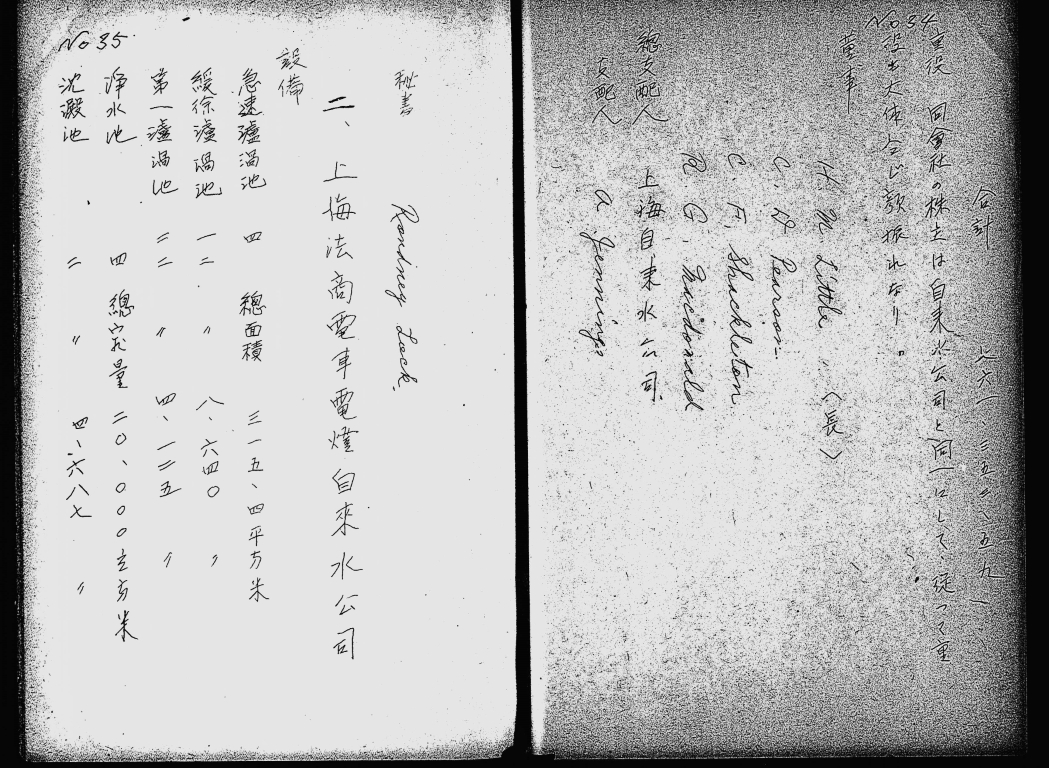 No 34
合計 六六一 三五六、五九一
重役 同會社の株主は自来水公司と同一にして従つて重
役も大体仝じ顔振れなり。
董事
H. M. Little (長)
C. D. Pearson
C. F. Shackleton
R. G. Macdonald
總支配人 上海自来水公司
支配人 A Jennings
秘書 Rondney Lock
二、上海法商電車電燈自來水公司
設備
急速濾渦池 四 總面積 三一五、四平方米
緩徐濾渦池 一二 〃 八、六四〇 〃
第一濾渦池 三二 〃 四、一二五 〃
淨水池 四 總容量 二〇、〇〇〇立方米
沈澱池 二 〃 四、六八七 〃
No 35